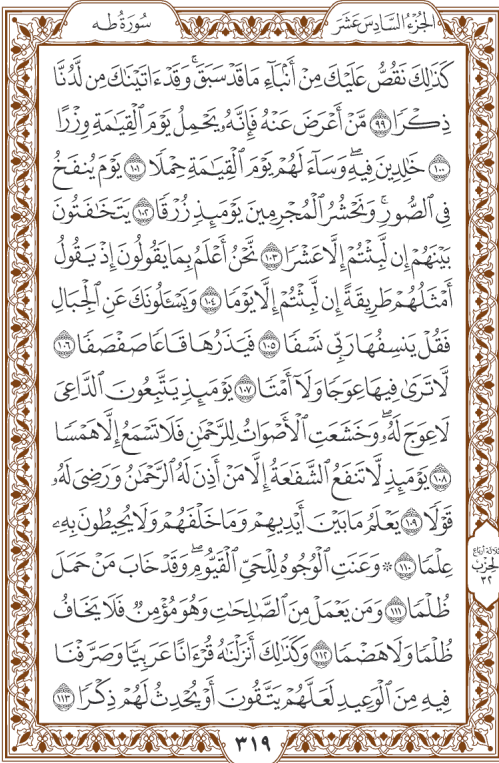 الجُزْءُ السَّادِسَ عَشَرَ
سُورَةُ طه
كَذَٰلِكَ نَقُصُّ عَلَيْكَ مِنْ أَنۢبَآءِ مَا قَدْ سَبَقَ ۚ وَقَدْ ءَاتَيْنَـٰكَ مِن لَّدُنَّا
ذِكْرًا ٩٩ مَّنْ أَعْرَضَ عَنْهُ فَإِنَّهُۥ يَحْمِلُ يَوْمَ ٱلْقِيَـٰمَةِ وِزْرًا
١٠٠ خَـٰلِدِينَ فِيهِ ۖ وَسَآءَ لَهُمْ يَوْمَ ٱلْقِيَـٰمَةِ حِمْلًا ١٠١ يَوْمَ يُنفَخُ
فِى ٱلصُّورِ ۚ وَنَحْشُرُ ٱلْمُجْرِمِينَ يَوْمَئِذٍ زُرْقًا ١٠٢ يَتَخَـٰفَتُونَ
بَيْنَهُمْ إِن لَّبِثْتُمْ إِلَّا عَشْرًا ١٠٣ نَّحْنُ أَعْلَمُ بِمَا يَقُولُونَ إِذْ يَقُولُ
أَمْثَلُهُمْ طَرِيقَةً إِن لَّبِثْتُمْ إِلَّا يَوْمًا ١٠٤ وَيَسْـَٔلُونَكَ عَنِ ٱلْجِبَالِ
فَقُلْ يَنسِفُهَا رَبِّى نَسْفًا ١٠٥ فَيَذَرُهَا قَاعًا صَفْصَفًا ١٠٦
لَّا تَرَىٰ فِيهَا عِوَجًا وَلَآ أَمْتًا ١٠٧ يَوْمَئِذٍ يَتَّبِعُونَ ٱلدَّاعِىَ
لَا عِوَجَ لَهُۥ ۖ وَخَشَعَتِ ٱلْأَصْوَاتُ لِلرَّحْمَـٰنِ فَلَا تَسْمَعُ إِلَّا هَمْسًا
١٠٨ يَوْمَئِذٍ لَّا تَنفَعُ ٱلشَّفَـٰعَةُ إِلَّا مَنْ أَذِنَ لَهُ ٱلرَّحْمَـٰنُ وَرَضِىَ لَهُۥ
قَوْلًا ١٠٩ يَعْلَمُ مَا بَيْنَ أَيْدِيهِمْ وَمَا خَلْفَهُمْ وَلَا يُحِيطُونَ بِهِۦ
عِلْمًا ١١٠ ۞ وَعَنَتِ ٱلْوُجُوهُ لِلْحَىِّ ٱلْقَيُّومِ ۖ وَقَدْ خَابَ مَنْ حَمَلَ
ظُلْمًا ١١١ وَمَن يَعْمَلْ مِنَ ٱلصَّـٰلِحَـٰتِ وَهُوَ مُؤْمِنٌ فَلَا يَخَافُ
ظُلْمًا وَلَا هَضْمًا ١١٢ وَكَذَٰلِكَ أَنزَلْنَـٰهُ قُرْءَانًا عَرَبِيًّا وَصَرَّفْنَا
فِيهِ مِنَ ٱلْوَعِيدِ لَعَلَّهُمْ يَتَّقُونَ أَوْ يُحْدِثُ لَهُمْ ذِكْرًا ١١٣
ثلاثة أرباع
الحزب
٣٢
٣١٩